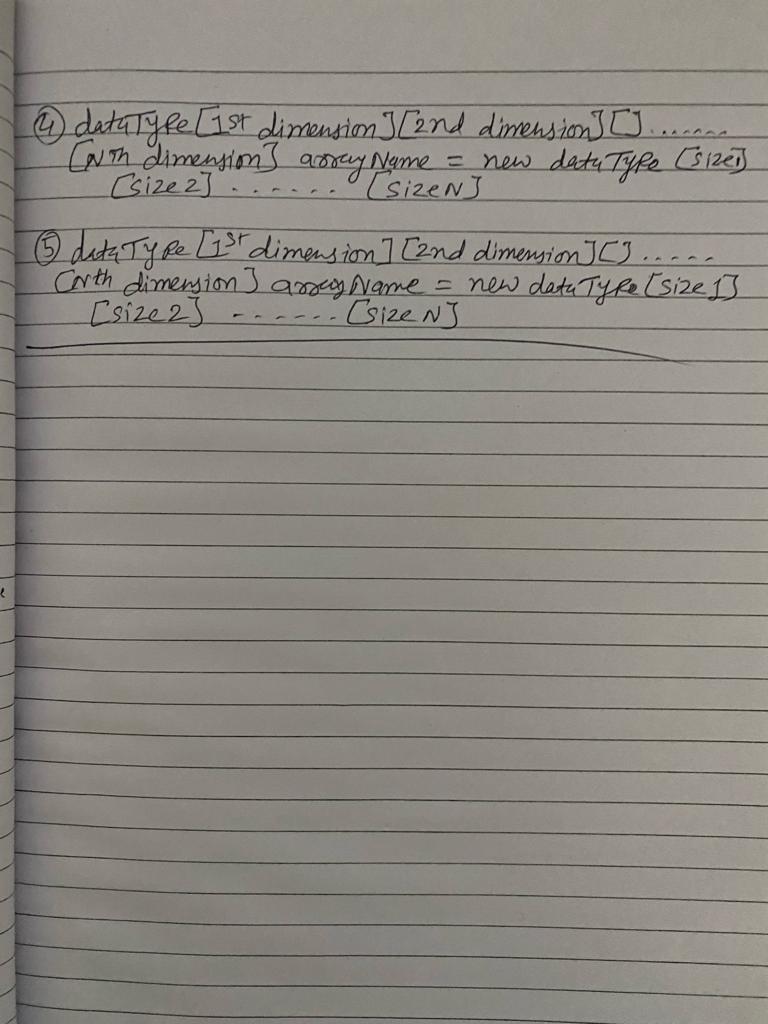 ④ dataType[1st dimension][2nd dimension][].......
[Nth dimension] arrayName = new dataType [size1]
[size2] ....... [sizeN]
⑤ dataType[1st dimension][2nd dimension][].....
[Nth dimension] arrayName = new dataType[size1]
[size2] ....... [sizeN]